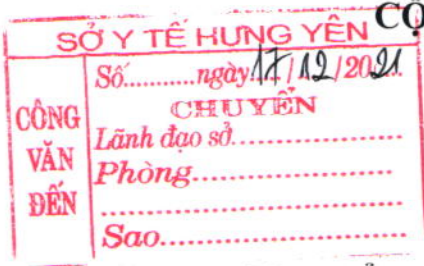 CỘ
SỞ Y TẾ HƯNG YÊN
CÔNG VĂN ĐẾN
Số...........ngày.17/12/2021.
CHUYỂN
Lãnh đạo sở.......................
Phòng..........................
.......................................
Sao..............................